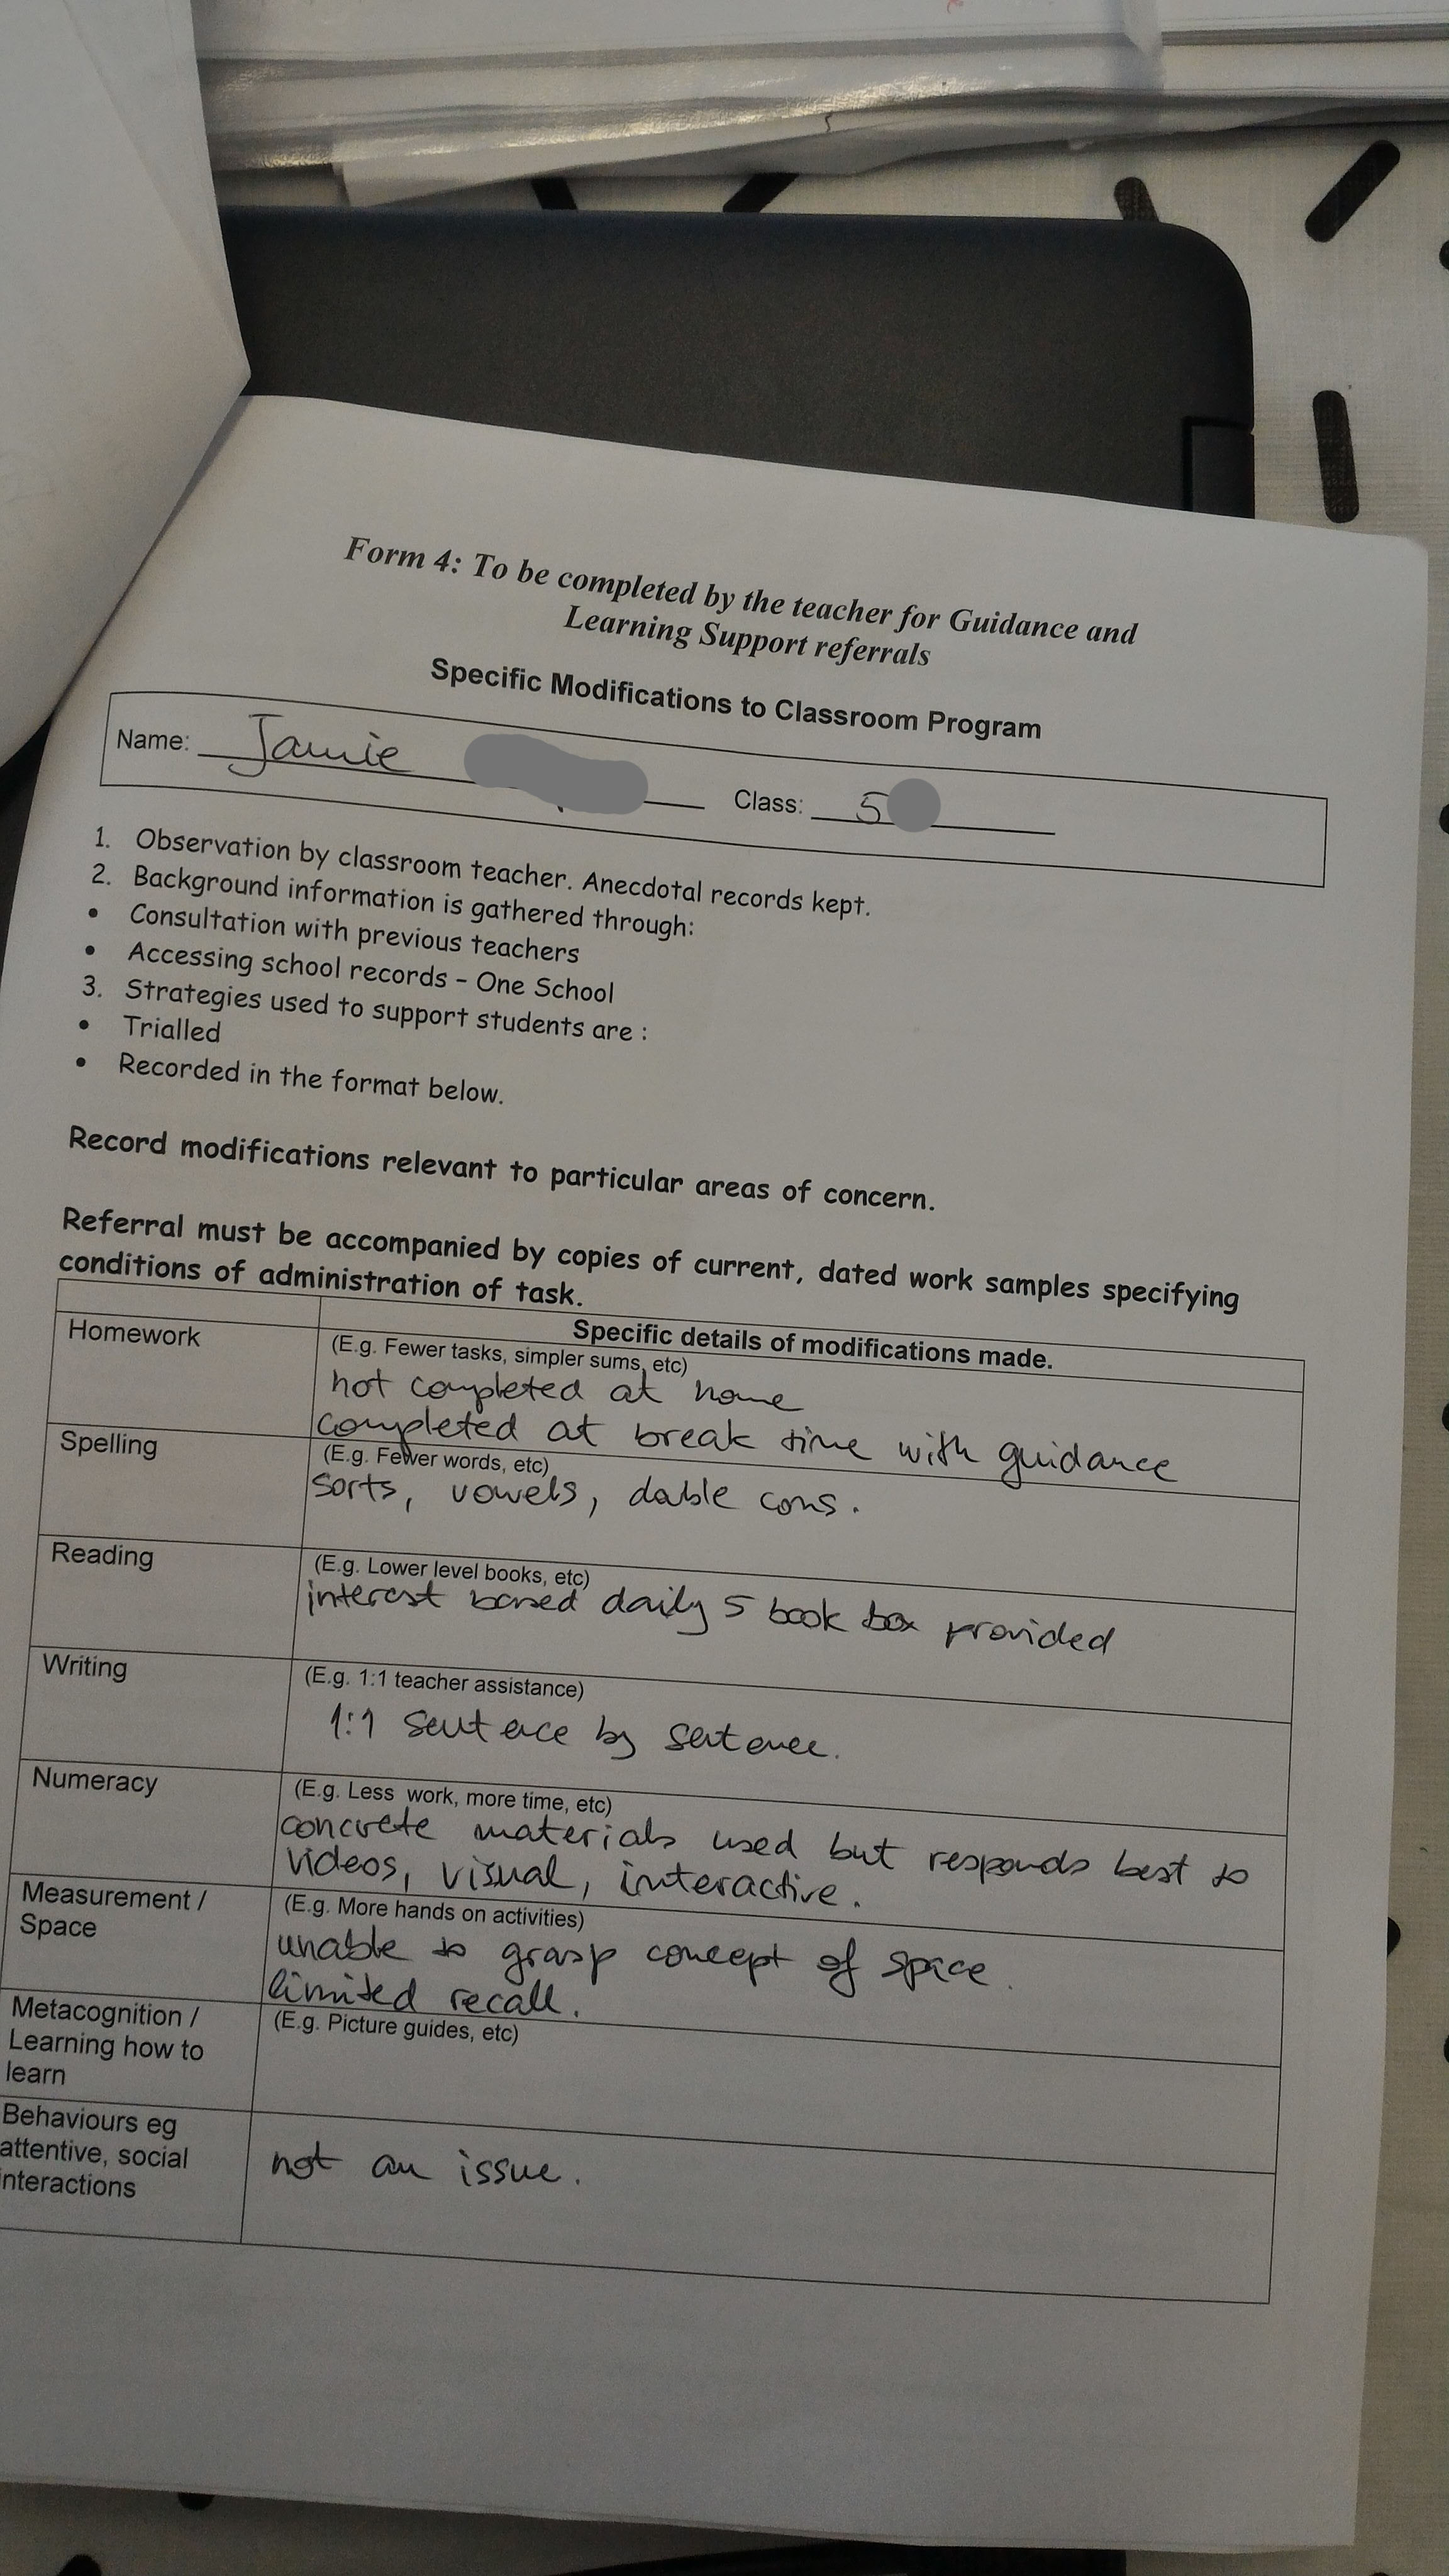 Form 4: To be completed by the teacher for Guidance and
Learning Support referrals
Specific Modifications to Classroom Program
Name: Jamie Class: 5
1. Observation by classroom teacher. Anecdotal records kept.
2. Background information is gathered through:
• Consultation with previous teachers
• Accessing school records - One School
3. Strategies used to support students are :
• Trialled
• Recorded in the format below.
Record modifications relevant to particular areas of concern.
Referral must be accompanied by copies of current, dated work samples specifying
conditions of administration of task.
Specific details of modifications made.
Homework
(E.g. Fewer tasks, simpler sums, etc)
not completed at home
completed at break time with guidance
Spelling
(E.g. Fewer words, etc)
sorts, vowels, dable cons.
Reading
(E.g. Lower level books, etc)
interest based daily 5 book box provided
Writing
(E.g. 1:1 teacher assistance)
1:1 sentence by sentence.
Numeracy
(E.g. Less work, more time, etc)
concrete materials used but responds best to
videos, visual, interactive.
Measurement /
Space
(E.g. More hands on activities)
unable to grasp concept of space.
limited recall.
Metacognition /
Learning how to
learn
(E.g. Picture guides, etc)
Behaviours eg
attentive, social
nteractions
not an issue.